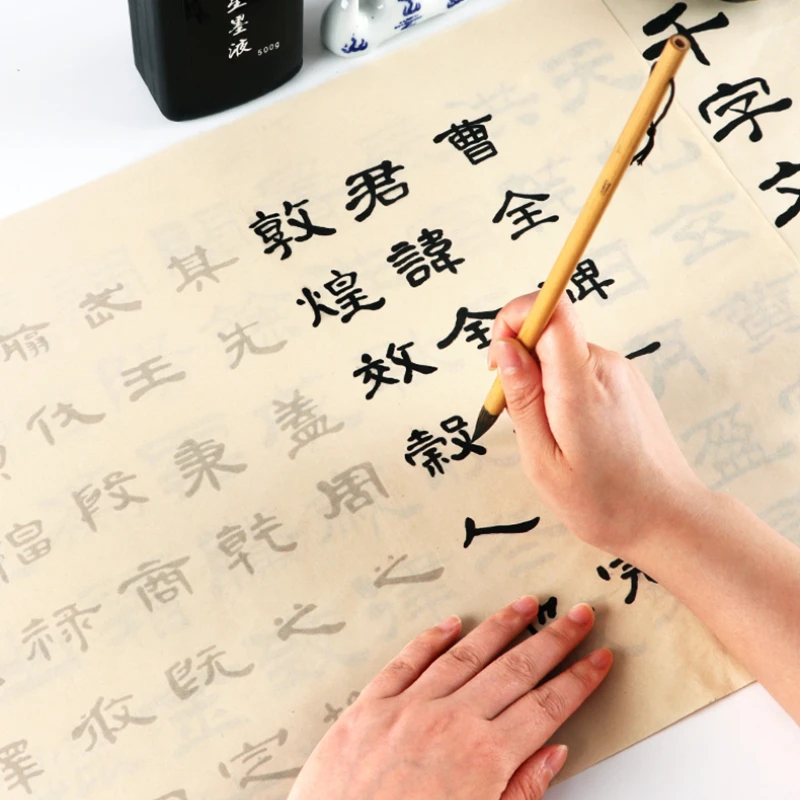 墨液
500g
千字文
曹全碑一
君諱全
完
敦煌效穀人
其先蓋周之
武王秉乾之機
翦伐殷商既定
福祿攸